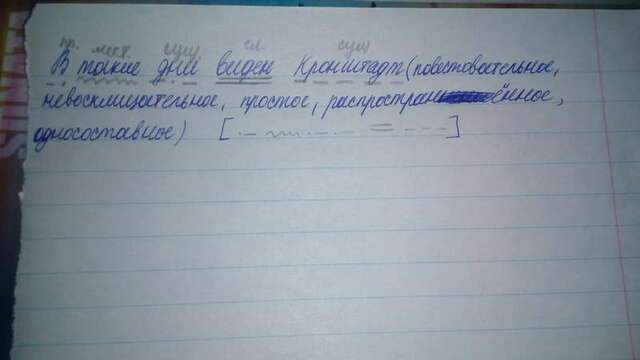 пр. мест. сущ гл. сущ
В такие дни виден Кронштадт (повествовательное,
невосклицательное, простое, распространённое,
односоставное) [ ]